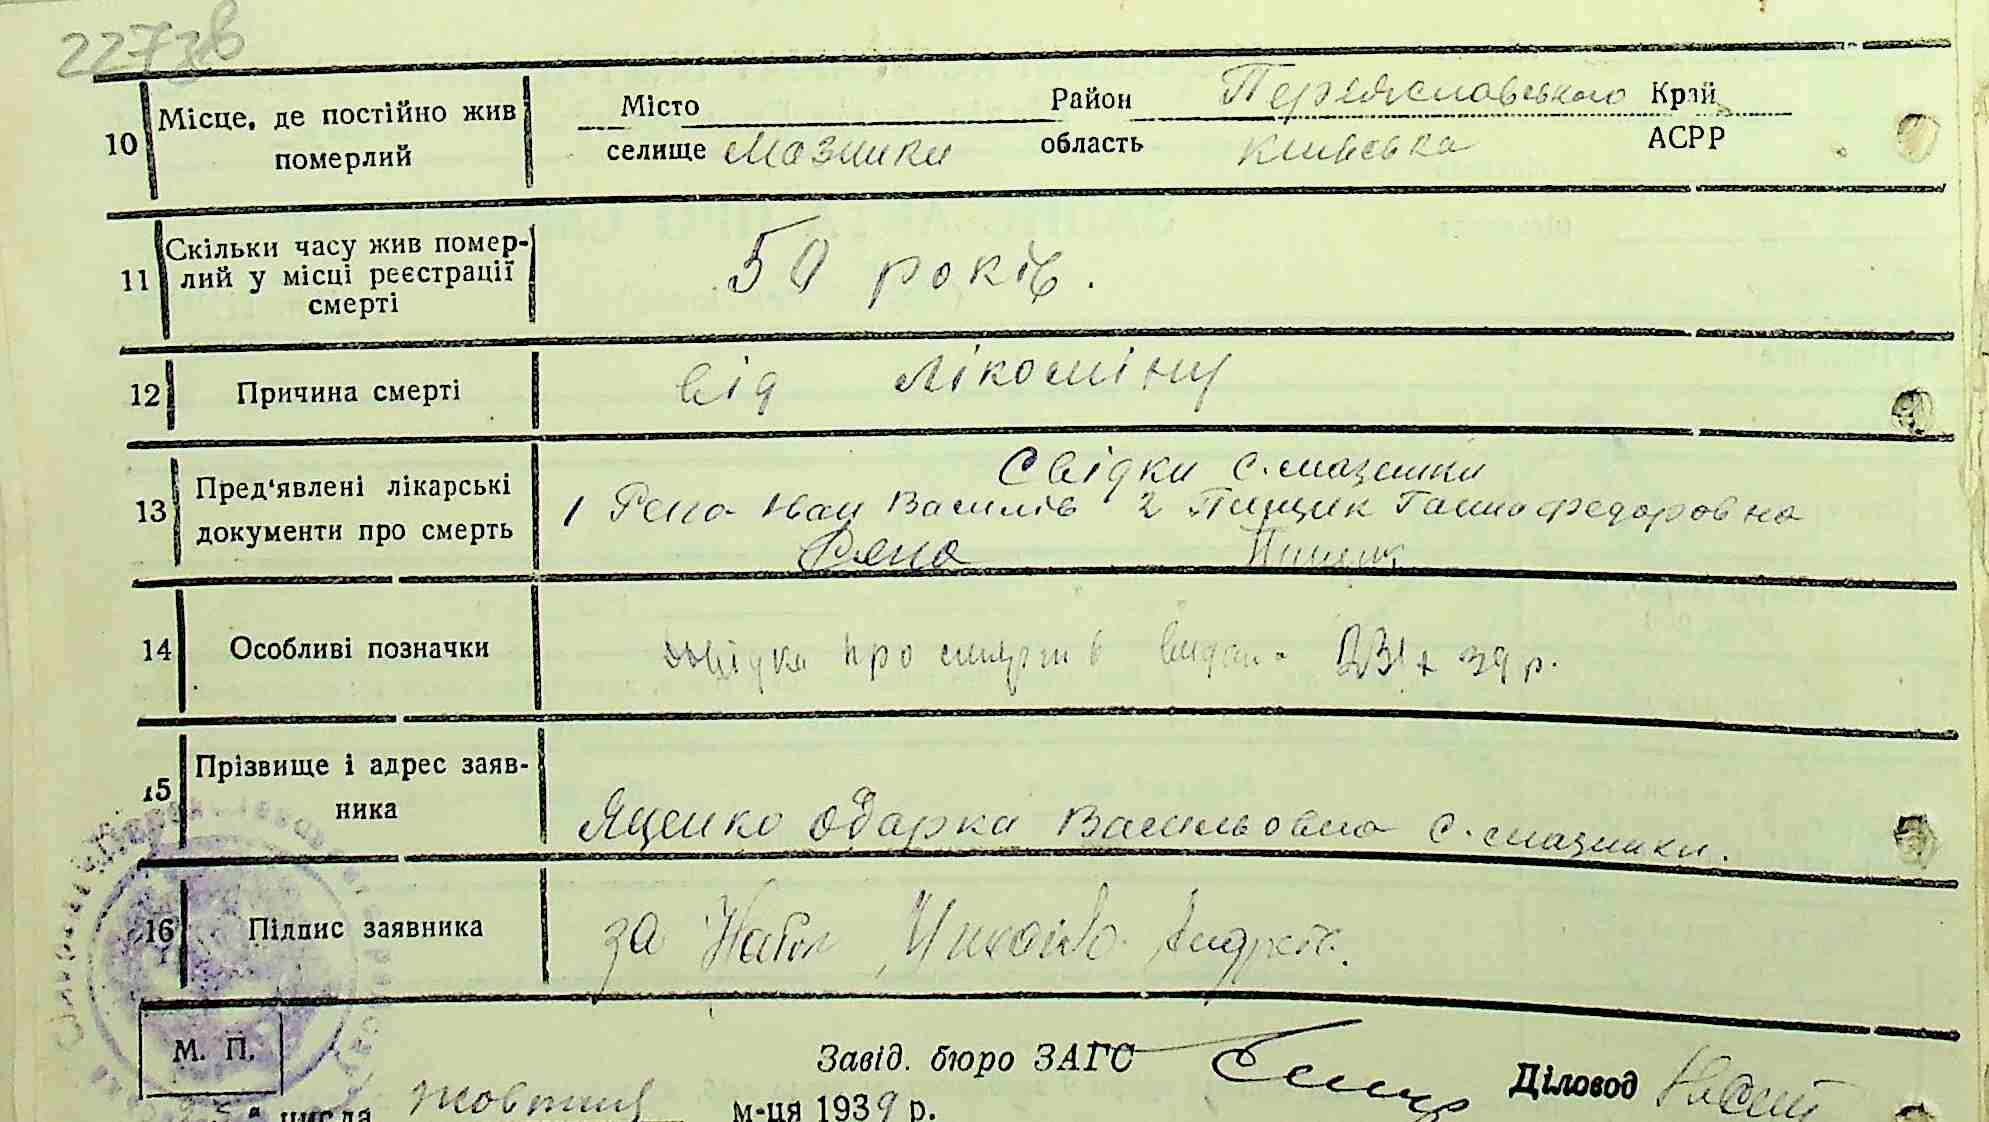 2273в
10 Місце, де постійно жив померлий Місто Район Переяславського Край
селище Мазинки область Київська АСРР
11 Скільки часу жив помер-
лий у місці реєстрації
смерті 50 років.
12 Причина смерті від
13 Пред'явлені лікарські
документи про смерть Свідки с. мазинки
1 Репа Иван Василів 2 Пищик Ганна федоровна
Репа Пищик
14 Особливі позначки довідка про смерть видана 39 р.
15 Прізвище і адрес заяв-
ника Яценко Одарка Васильовна с. мазинки.
16 Підпис заявника за
М. П.
Завід. бюро ЗАГС Діловод
числа жовтня м-ця 1939 р.